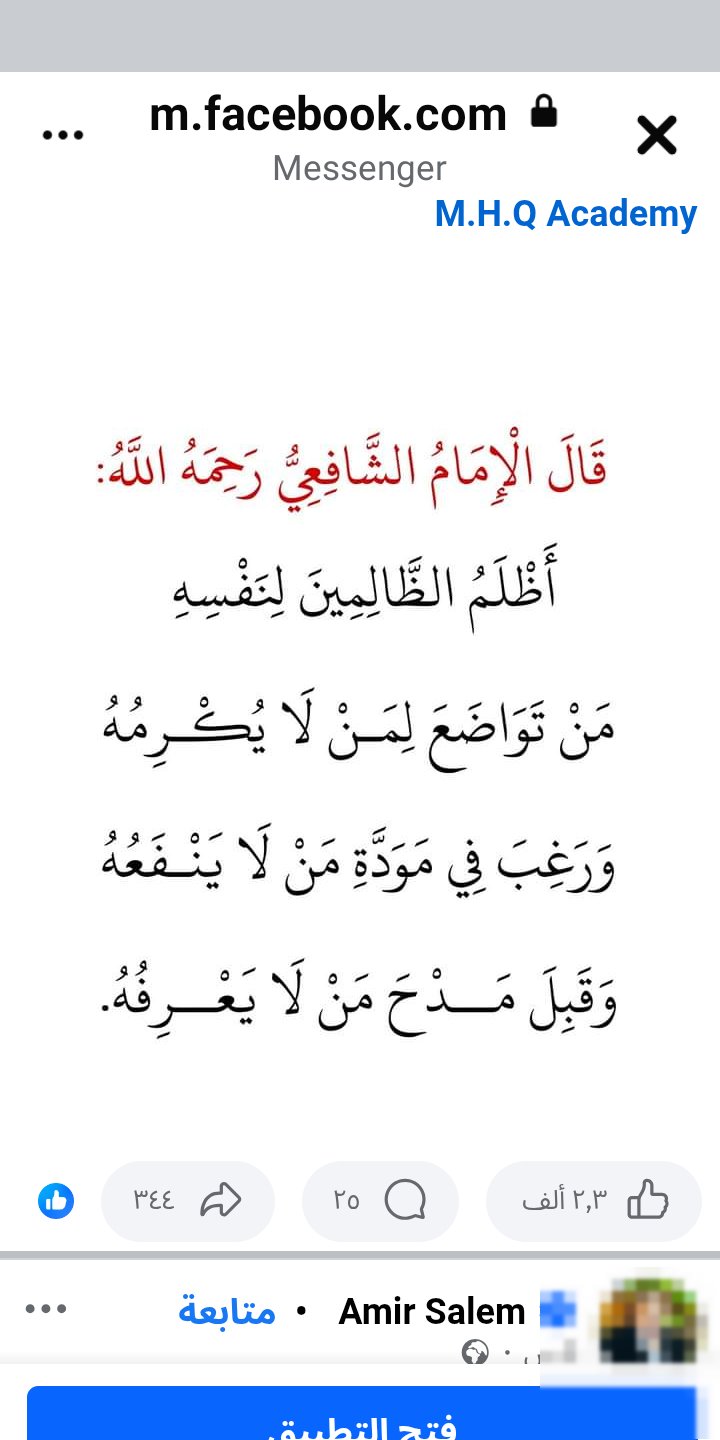 m.facebook.com
Messenger
M.H.Q Academy
قَالَ الْإِمَامُ الشَّافِعِيُّ رَحِمَهُ اللَّهُ:
أَظْلَمُ الظَّالِمِينَ لِنَفْسِهِ
مَنْ تَوَاضَعَ لِمَـنْ لَا يُكْـرِمُهُ
وَرَغِبَ فِي مَوَدَّةِ مَنْ لَا يَنْـفَعُهُ
وَقَبِلَ مَـــدْحَ مَنْ لَا يَعْـــرِفُهُ.
٢,٣ ألف
٢٥
٣٤٤
Amir Salem • متابعة
فتح التطبيق